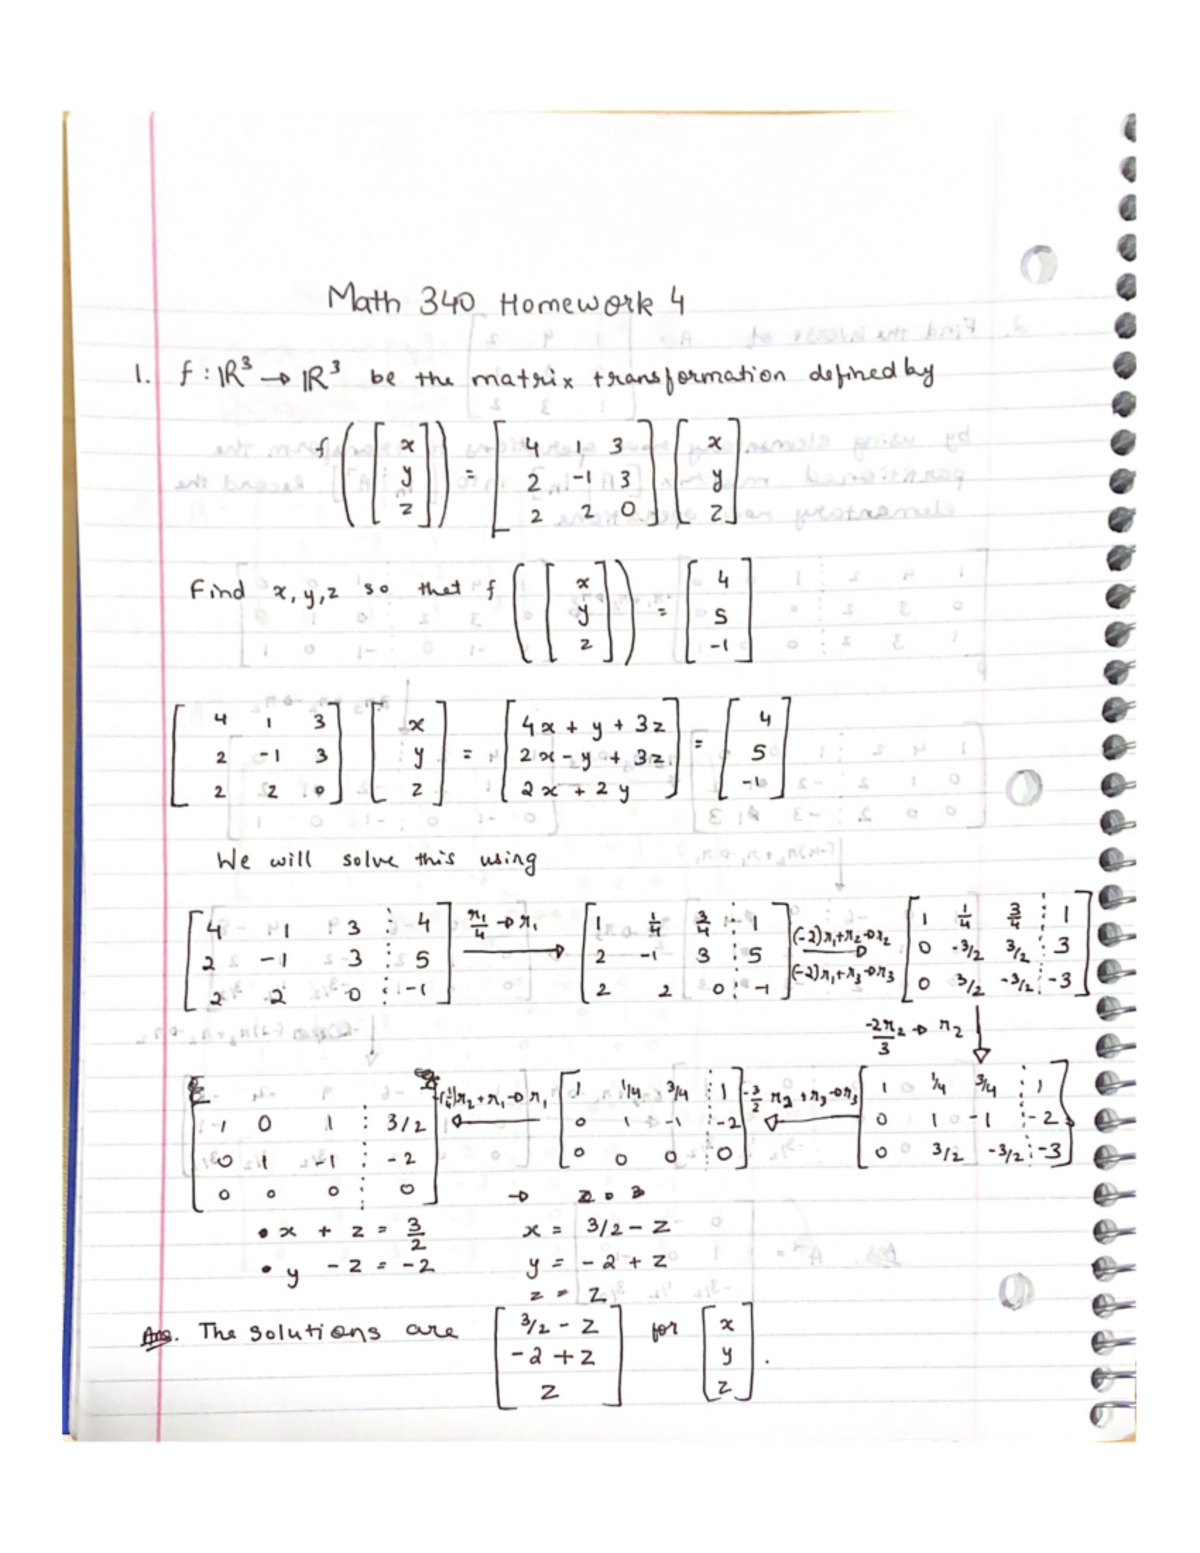 Math 340 Homework 4
1. f : ℝ³ → ℝ³ be the matrix transformation defined by
f([x y z]) = [4 1 3; 2 -1 3; 2 2 0] [x y z]
Find x, y, z so that f([x y z]) = [4 5 -1]
[4 1 3; 2 -1 3; 2 2 0] [x y z] = [4x + y + 3z; 2x - y + 3z; 2x + 2y] = [4 5 -1]
We will solve this using
[4 1 3 ⋮ 4; 2 -1 3 ⋮ 5; 2 2 0 ⋮ -1] r₁/4 → r₁ [1 1/4 3/4 ⋮ 1; 2 -1 3 ⋮ 5; 2 2 0 ⋮ -1] (-2)r₁+r₂→r₂ (-2)r₁+r₃→r₃ [1 1/4 3/4 ⋮ 1; 0 -3/2 3/2 ⋮ 3; 0 3/2 -3/2 ⋮ -3]
-2r₂/3 → r₂
[1 1/4 3/4 ⋮ 1; 0 1 -1 ⋮ -2; 0 3/2 -3/2 ⋮ -3] -3/2 r₂ + r₃→r₃ [1 1/4 3/4 ⋮ 1; 0 1 -1 ⋮ -2; 0 0 0 ⋮ 0] -(1/4)r₂+r₁→r₁ [1 0 1 ⋮ 3/2; 0 1 -1 ⋮ -2; 0 0 0 ⋮ 0]
• x + z = 3/2 x = 3/2 - z
• y - z = -2 y = -2 + z
z = z
Ans. The solutions are [3/2 - z; -2 + z; z] for [x y z].